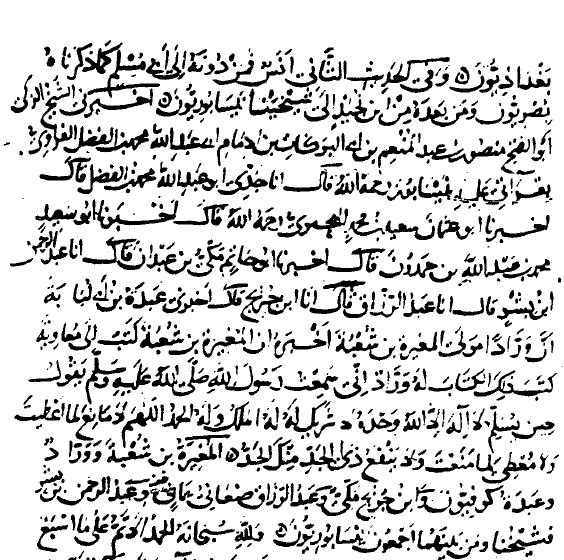 بغداديون وفي الحديث الثاني انس فمن دونه الى ابي مسلم كما ذكرناه
بصريون ومن بعده من ابن نجيد الى شيخينا نيسابوريون اخبرني الشيخ الزكي
ابو الفتح منصور بن عبد المنعم بن ابي البركات بن الامام ابي عبد الله محمد بن الفضل الفراوي
بقراتي عليه بنيسابور رحمه الله قال انا جدي ابو عبد الله محمد بن الفضل قال
اخبرنا ابو عثمان سعيد بن محمد البحيري رحمه الله قال اخبرنا ابو سعيد
محمد بن عبد الله بن حمدون قال اخبرنا ابو حاتم مكي بن عبدان قال انا عبد الرحمن
ابن بشر قال انا عبد الرزاق قال انا ابن جريج قال اخبرني عبدة بن ابي لبابة
ان ورادا مولى المغيرة بن شعبة اخبره ان المغيرة بن شعبة كتب الى معاوية
كتب ذلك الكتاب له وراد اني سمعت رسول الله صلى الله عليه وسلم يقول
حين يسلم لا اله الا الله وحده لا شريك له له الملك وله الحمد اللهم لا مانع لما اعطيت
ولا معطي لما منعت ولا ينفع ذي الجد منك الجد المغيرة بن شعبة ووراد
وعبدة كوفيون وابن جريج مكي وعبد الرزاق صنعاني يماني وعبد الرحمن بن بشر
فشيخنا ومن بينهما اجمعون نيسابوريون ولله سبحانه الحمد الاتم على ما اسبغ